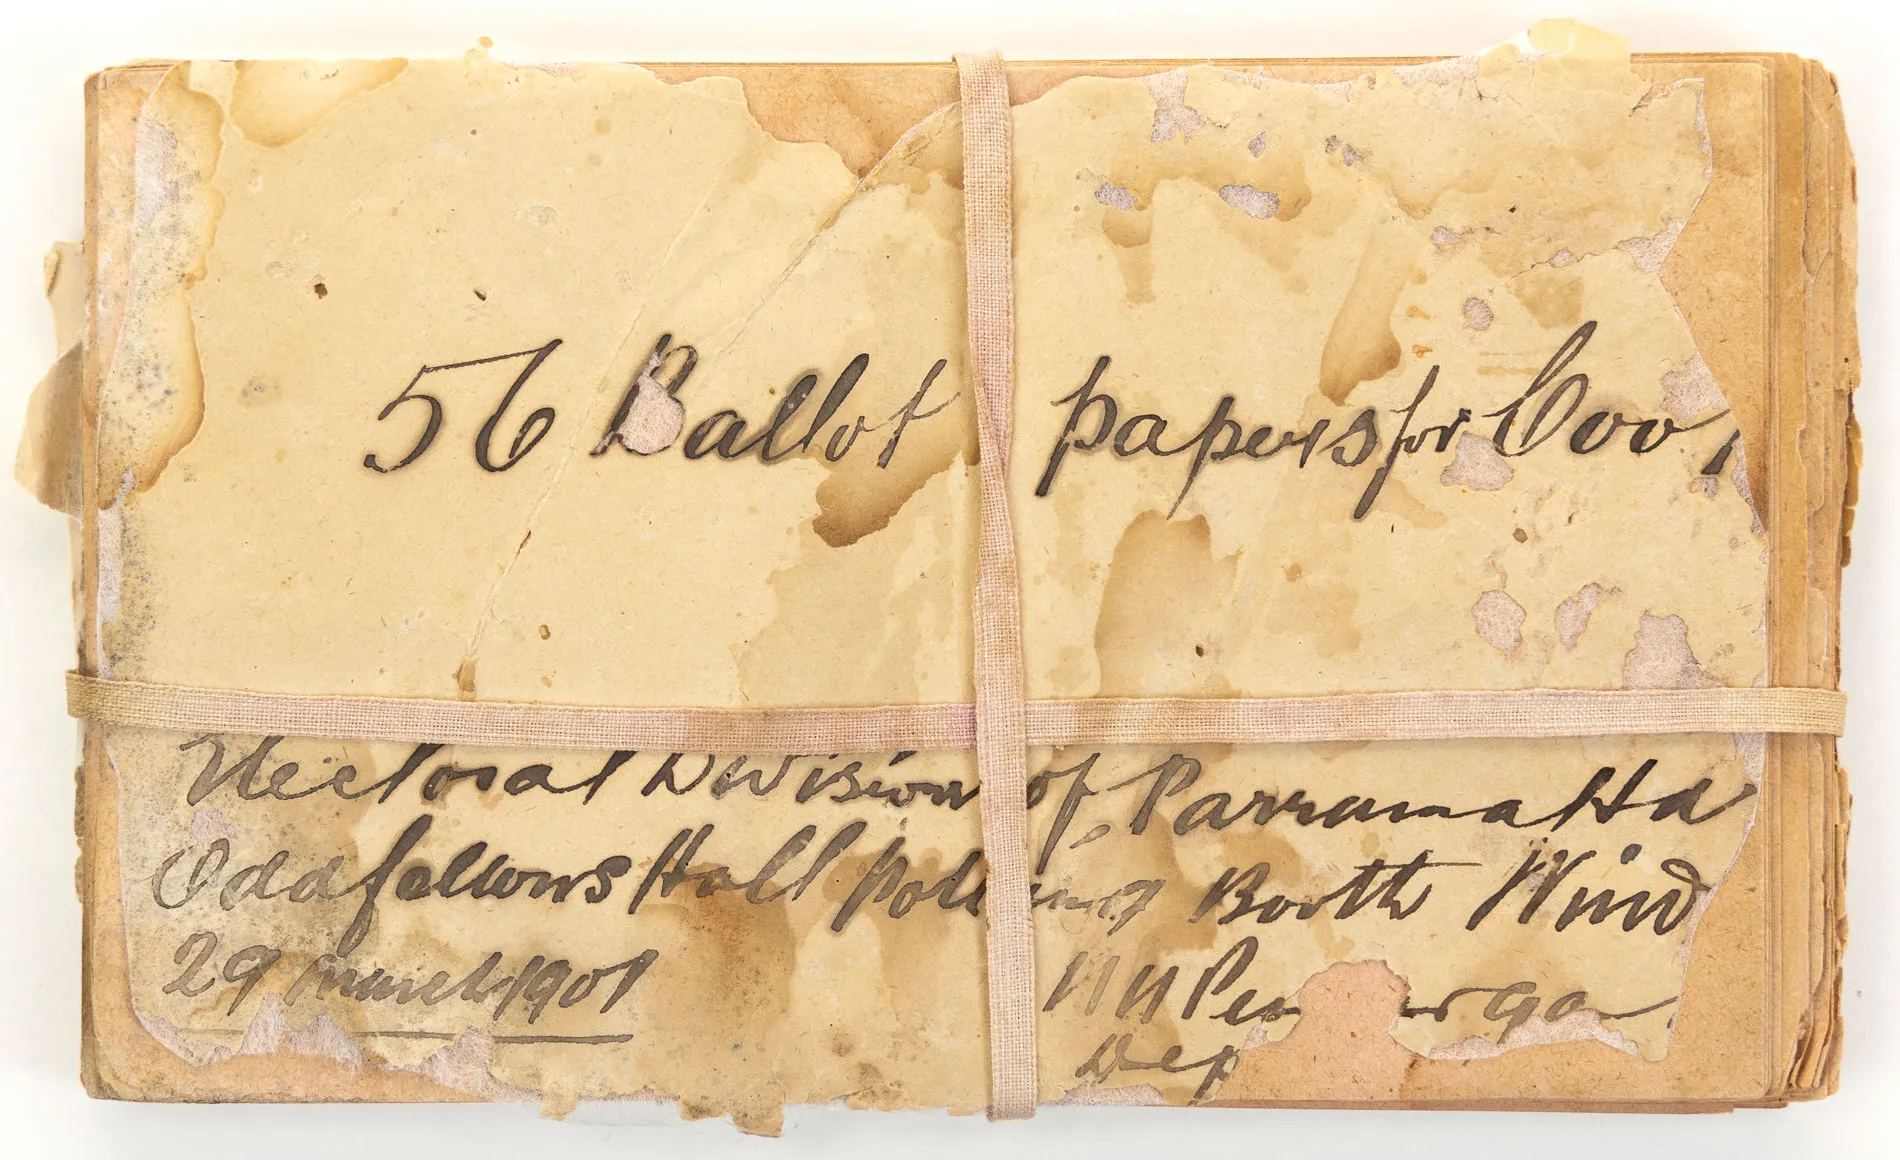 56 Ballot papers for Coo
Electoral Division of Parramatta
Oddfellows Hall Polling Booth Wind
29 March 1901
Dep